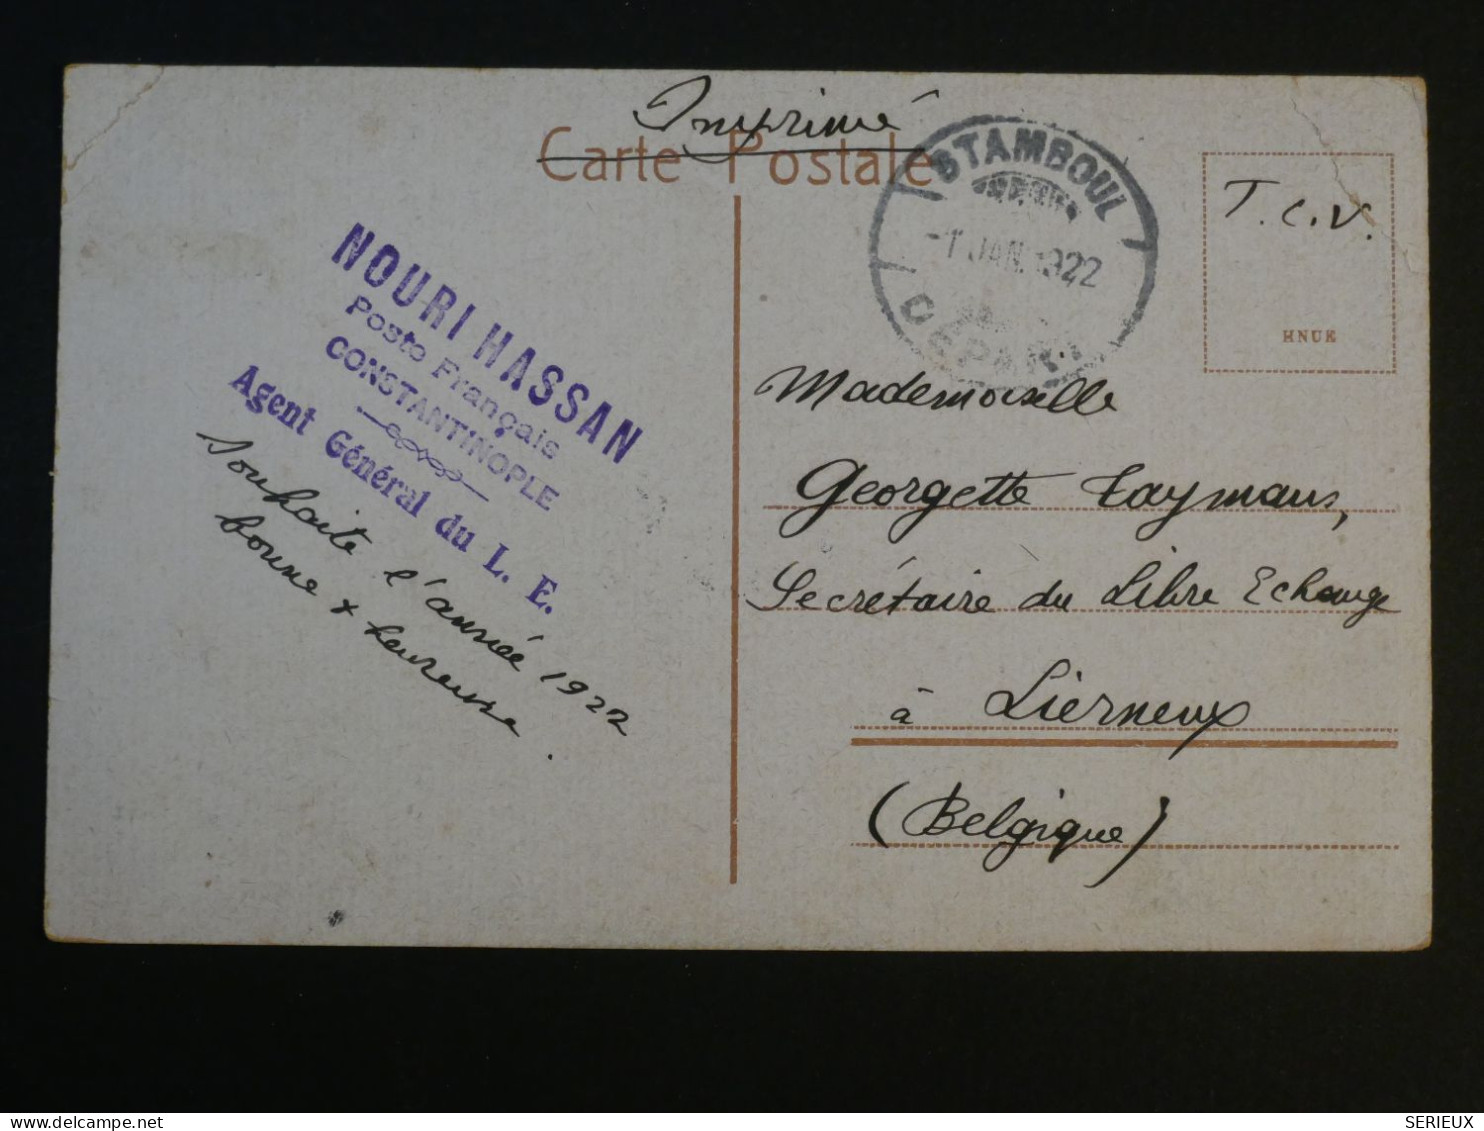 Imprimé
Carte Postale
STAMBOUL
-1 JAN 1922
DEPART
T.C.V.
HNUE
NOURI HASSAN
Poste Français
CONSTANTINOPLE
Agent Général du L. E.
souhaite l'année 1922
bonne + heureuse.
Mademoiselle
Georgette Taymans,
Secrétaire du Libre Echange
à Lierneux
(Belgique)
SERIEUX - delcampe.net